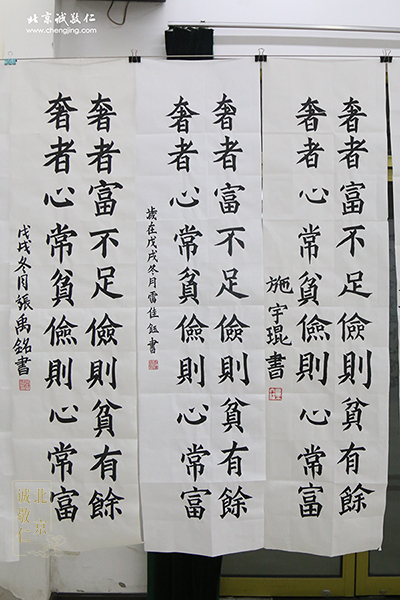 北京誠敬仁
www.chengjing.com
奢者富不足儉則貧有餘
奢者心常貧儉則心常富
施宇琨書
奢者富不足儉則貧有餘
奢者心常貧儉則心常富
歲在戊戌冬月雷佳鈺書
奢者富不足儉則貧有餘
奢者心常貧儉則心常富
戊戌冬月張禹銘書
北京
诚敬仁